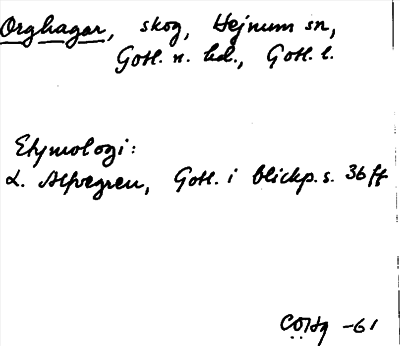 Orghagar, skog, Hejnum sn,
Gotl. n. hd., Gotl. l.
Etymologi:
L. Alvegren, Gotl. i blickp. s. 36 ff
-61